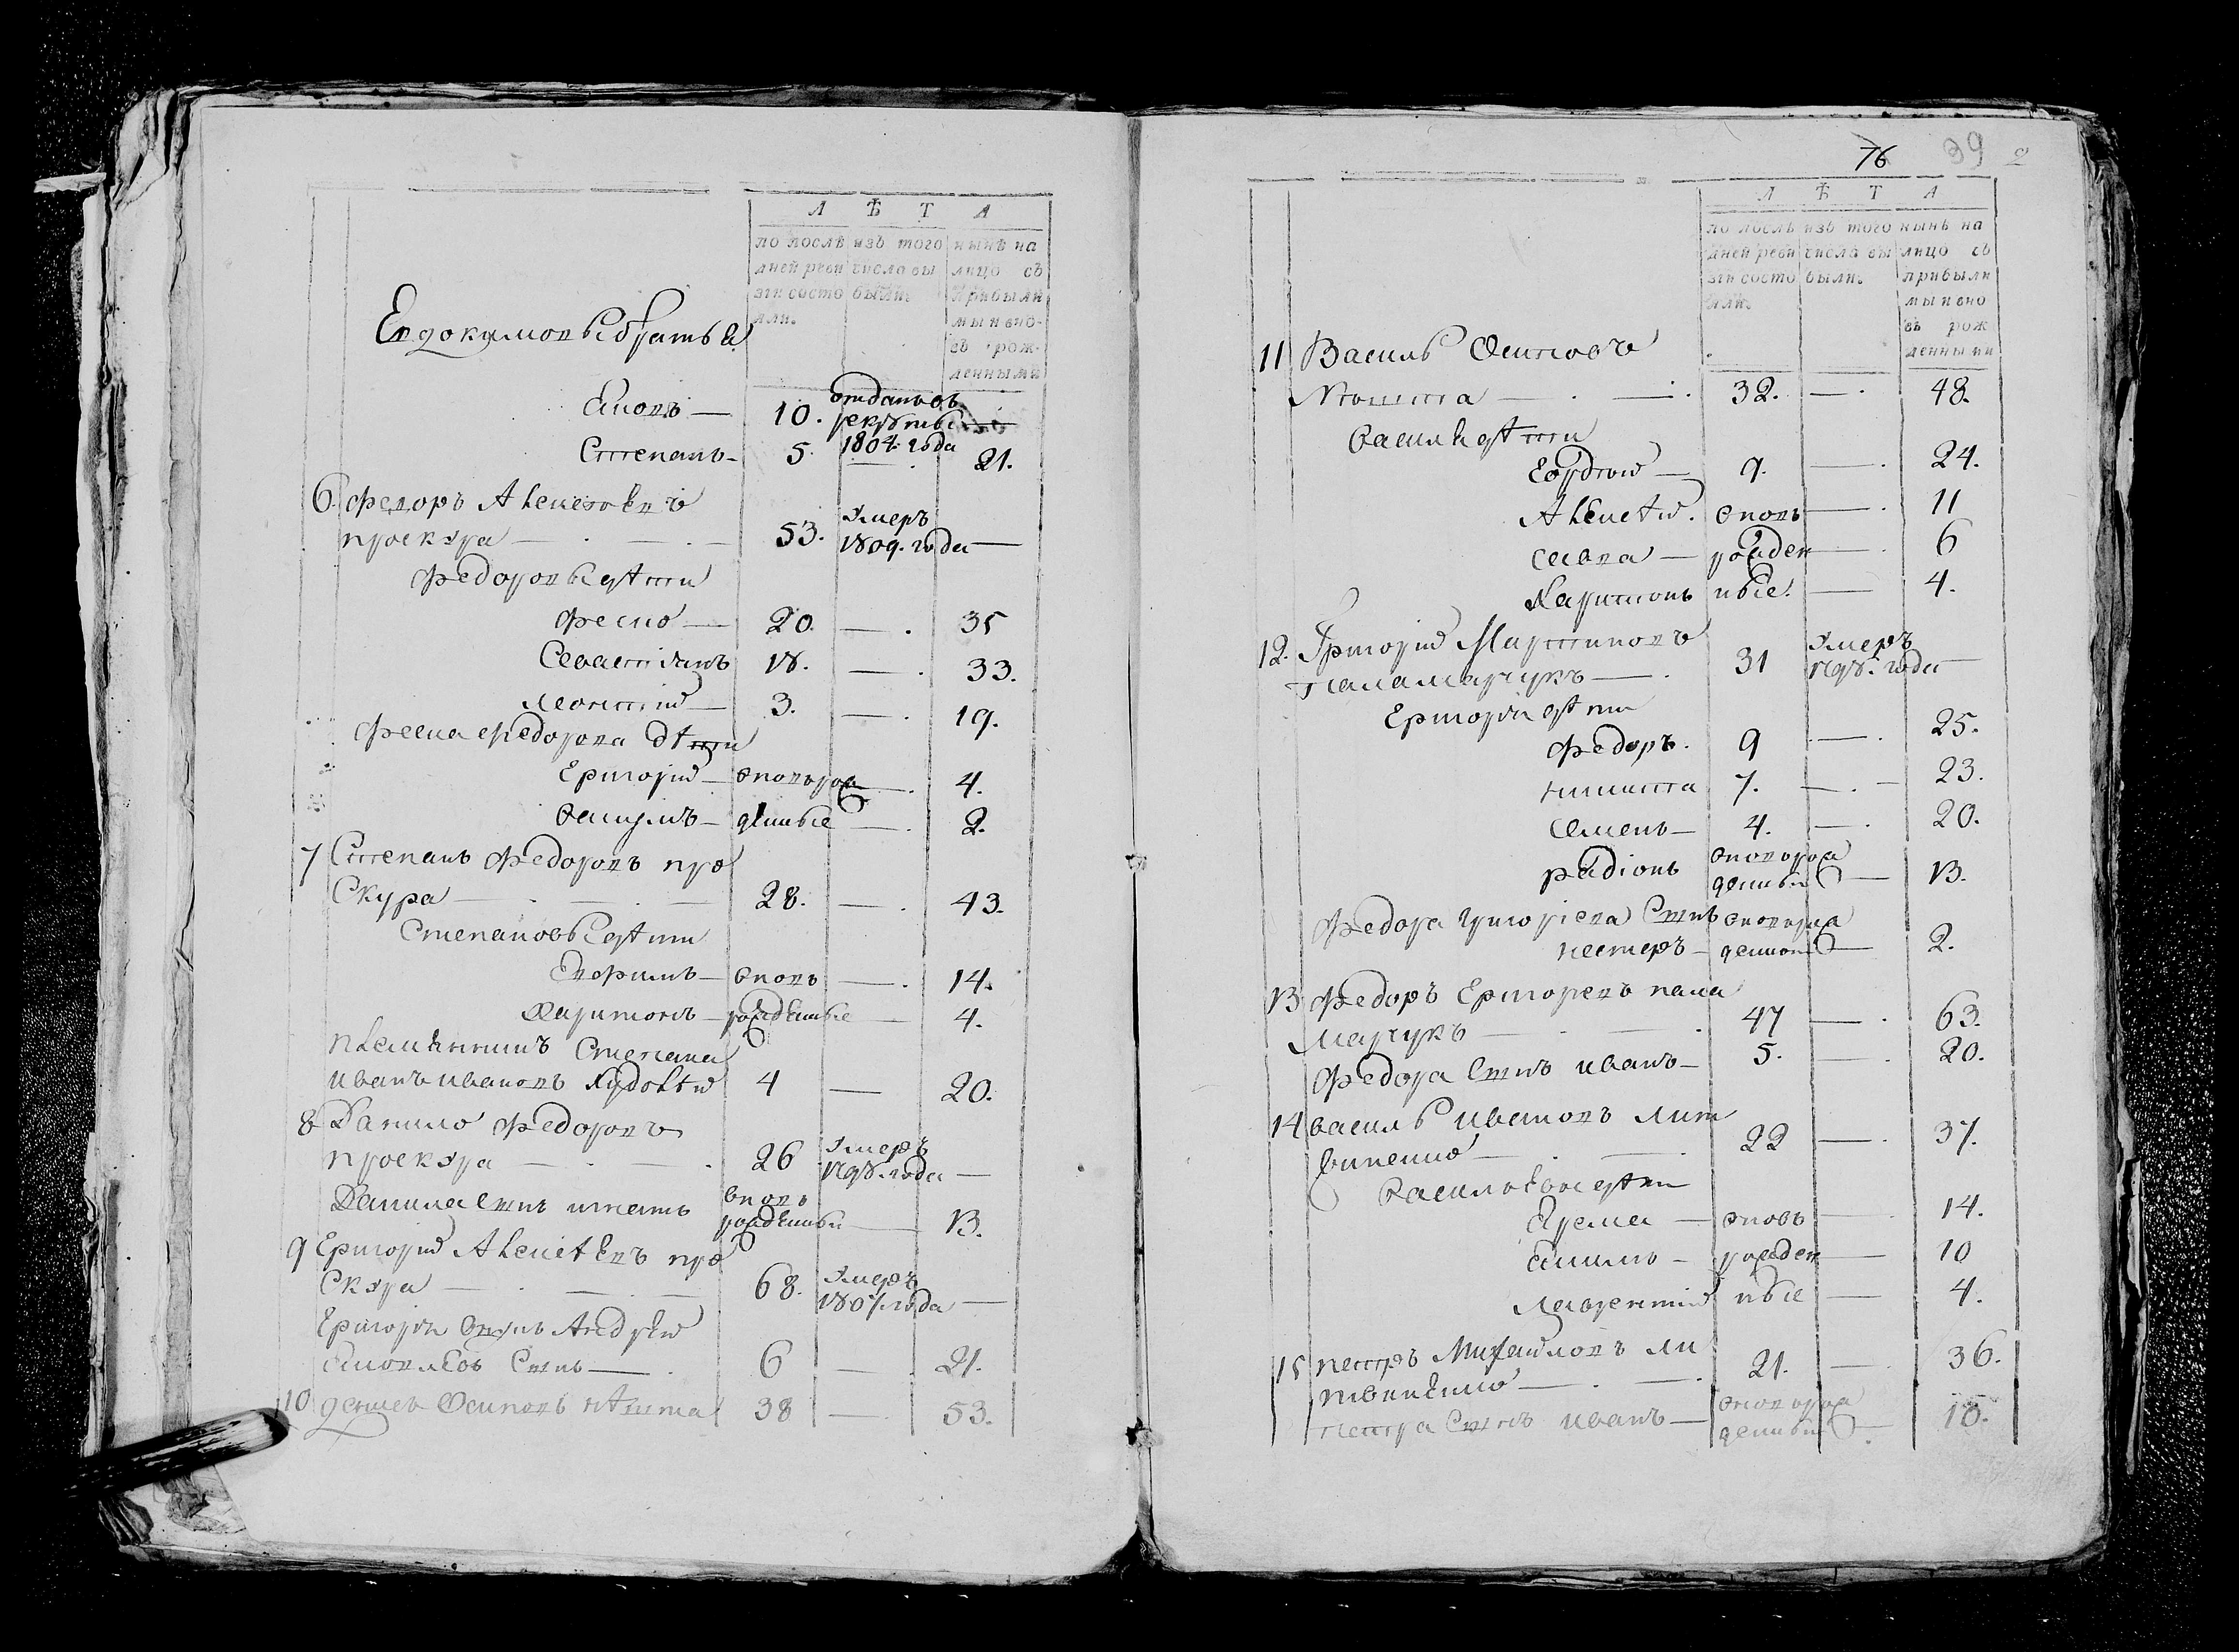 Л Ѣ Т А
по послѣ изъ того нынѣ на
дней реви числа вы лицо съ
зіи состо были. прибыли
яли. мы и вно-
въ рож-
денными
Евдокимовы братья
Яковъ — 10. отданъ въ рекруты 1804. года
Степанъ — 5. — 21.
6. Федоръ Алексѣевъ
проскура — 53. Умеръ 1809. года —
Федоровы дѣти
Феско — 20. — 35
Севастіянъ 18. — 33.
Леонтій — 3. — 19.
Феска Федорова дѣти
Григорій — вновь рож — 4.
— денные — 2.
7 Степанъ Федоровъ про
скура — 28. — 43.
Степановы дѣти
— вновь — 14.
Харитонъ — рожденные — 4.
племянникъ Степана
иванъ ивановъ 4 — 20.
8 Данило Федоровъ
проскура — 26 Умеръ 1798. года —
Данила сынъ игнатъ вновь рожденный — 13.
9 Григорій Алексѣевъ про
скура — 68. Умеръ 1807. года —
Григорія сынъ Андрей
Яковлевъ сынъ — 6 — 21.
10 денисъ Осиповъ 38 — 53.
76 39
Л Ѣ Т А
по послѣ изъ того нынѣ на
дней реви числа вы лицо съ
зіи состо были. прибыли
яли. мы и вно
въ рож
денными
11 Василь Осиповъ
32. — 48.
Василя дѣти
9. — 24.
Алексѣй. вновь — 11
Савва — рожден — 6
Харитонъ ные. — 4.
12. Григорій Мартиновъ
паламарчукъ — 31 Умеръ 1798. года —
Григорія дѣти
Федоръ. 9 — 25.
никита 7. — 23.
Семенъ — 4. — 20.
радіонъ вновь рож денный — 13.
Федора григоріева сынъ вновь рож
нестеръ — денной — 2.
13 Федоръ Григоревъ пала
марчукъ — 47 — 63.
Федора сынъ иванъ — 5. — 20.
14 василь ивановъ лит
виненко — 22 — 37.
Васильевы дѣти
Ярема — вновь — 14.
Якимъ — рожден — 10
Лаврентій ные — 4.
15 петръ Михайловъ ли
твиненко — 21. — 36.
петра сынъ иванъ — вновь рож денный — 10.